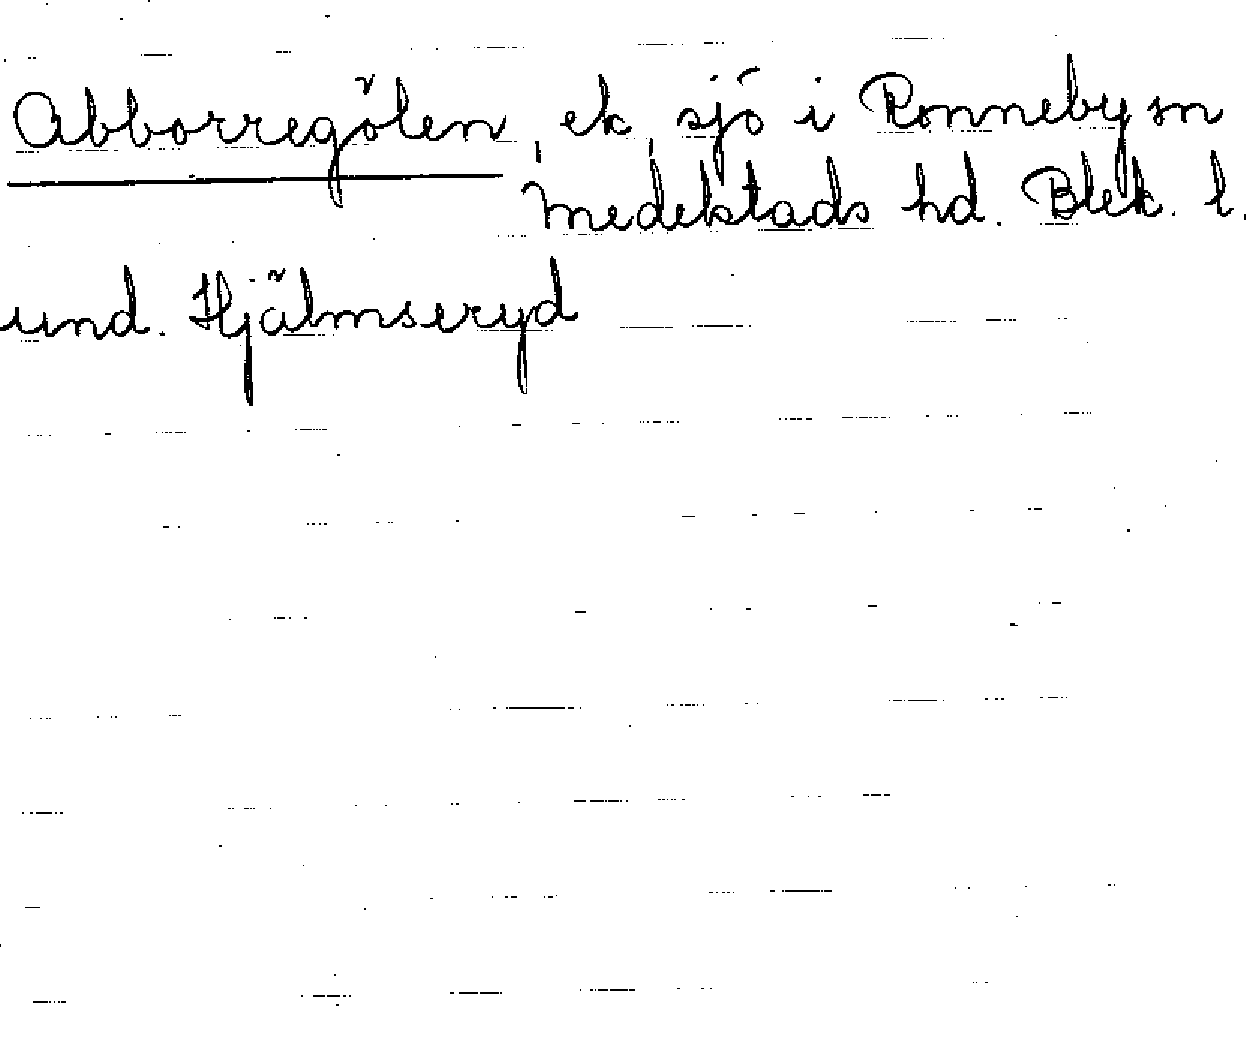 Abborregölen, ek, sjö i Ronneby sn
Medelstads hd. Blek. l.
und. Hjälmseryd